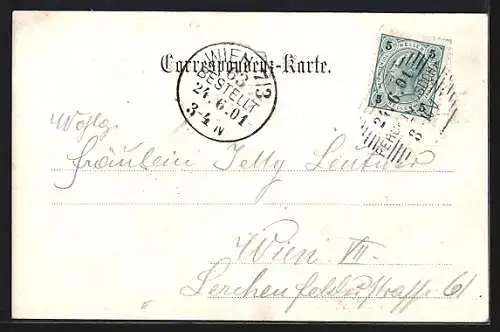 Correspondenz-Karte.
WIEN 7/3
63
BESTELLT
24.6.01
3-4 N
5 HELLER 5
5 5
24 6 01
Wohlg.
Fräulein Jelly Leutner
Wien VII
Lerchenfelderstraße 61